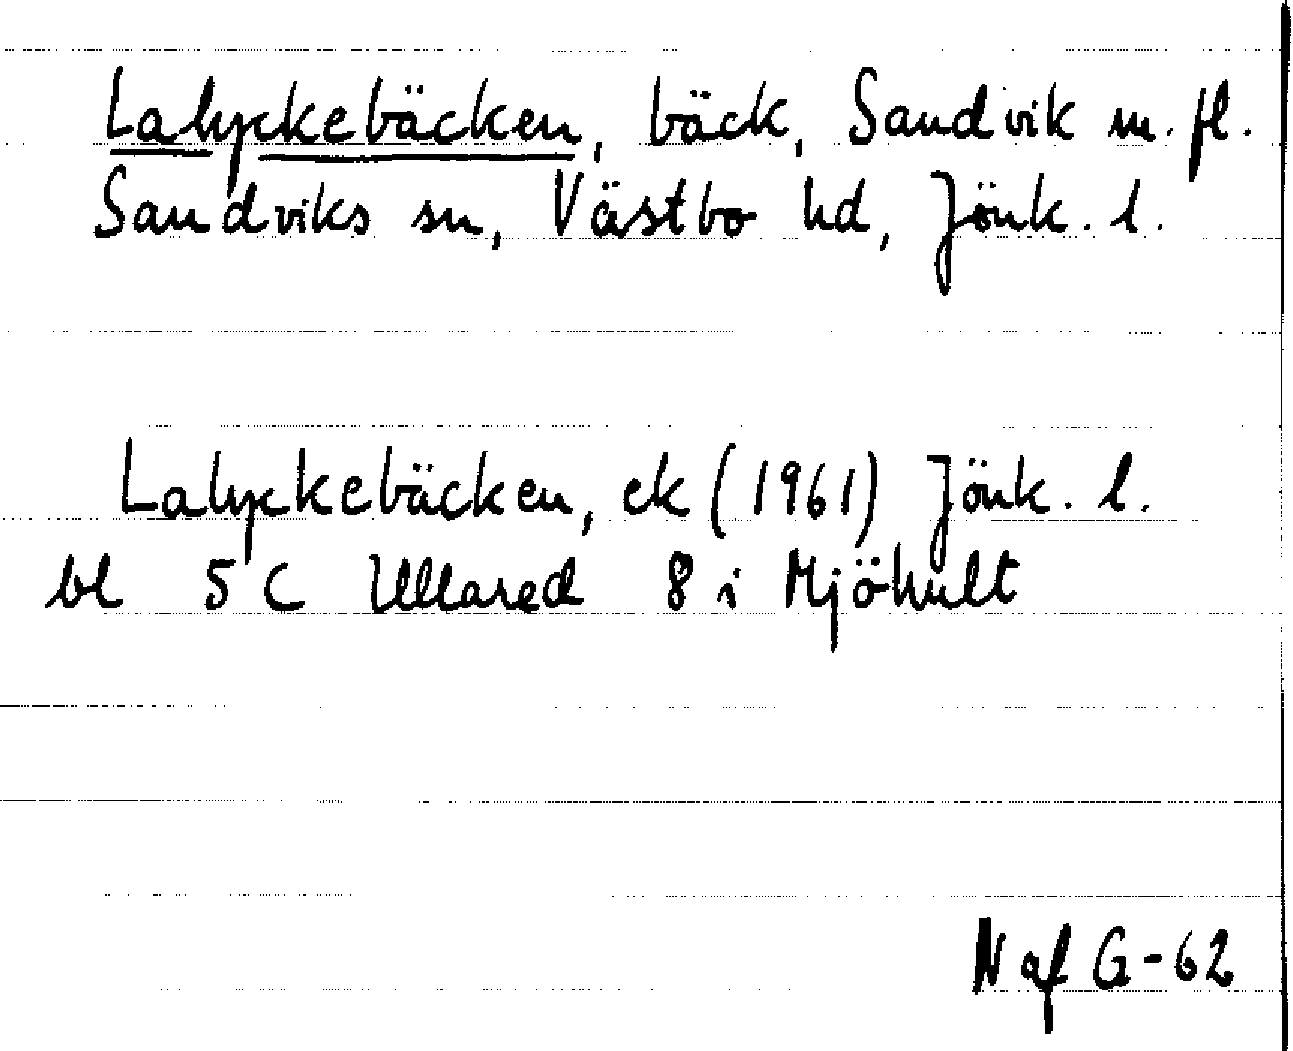 Lalyckebäcken, bäck, Sandvik m. fl.
Sandviks sn, Västbo hd, Jönk. l.
Lalyckebäcken, ek (1961) Jönk. l.
bl 5 C Ullared 8 i Mjöhult
N af G-62